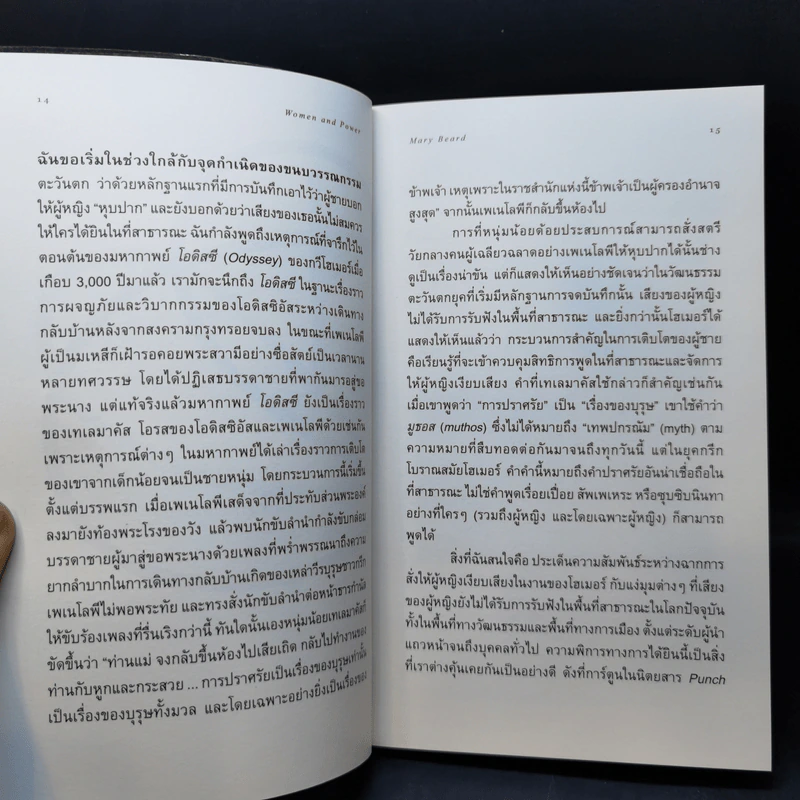 14
Women and Power
ฉันขอเริ่มในช่วงใกล้กับจุดกำเนิดของขนบวรรณกรรม
ตะวันตก ว่าด้วยหลักฐานแรกที่มีการบันทึกเอาไว้ว่าผู้ชายบอก
ให้ผู้หญิง “หุบปาก” และยังบอกด้วยว่าเสียงของเธอนั้นไม่สมควร
ให้ใครได้ยินในที่สาธารณะ ฉันกำลังพูดถึงเหตุการณ์ที่จารึกไว้ใน
ตอนต้นของมหากาพย์ โอดิสซี (Odyssey) ของกวีโฮเมอร์เมื่อ
เกือบ 3,000 ปีมาแล้ว เรามักจะนึกถึง โอดิสซี ในฐานะเรื่องราว
การผจญภัยและวิบากกรรมของโอดิสซิอัสระหว่างเดินทาง
กลับบ้านหลังจากสงครามกรุงทรอยจบลง ในขณะที่เพเนโลพี
ผู้เป็นมเหสีก็เฝ้ารอคอยพระสวามีอย่างซื่อสัตย์เป็นเวลานาน
หลายทศวรรษ โดยได้ปฏิเสธบรรดาชายที่พากันมารอสู่ขอ
พระนาง แต่แท้จริงแล้วมหากาพย์ โอดิสซี ยังเป็นเรื่องราว
ของเทเลมาคัส โอรสของโอดิสซิอัสและเพเนโลพีด้วยเช่นกัน
เพราะเหตุการณ์ต่างๆ ในมหากาพย์ได้เล่าเรื่องราวการเติบโต
ของเขาจากเด็กน้อยจนเป็นชายหนุ่ม โดยกระบวนการนี้เริ่มขึ้น
ตั้งแต่บรรพแรก เมื่อเพเนโลพีเสด็จจากที่ประทับส่วนพระองค์
ลงมายังท้องพระโรงของวัง แล้วพบนักขับลำนำกำลังขับกล่อม
บรรดาชายผู้มาสู่ขอพระนางด้วยเพลงที่พร่ำพรรณนาถึงความ
ยากลำบากในการเดินทางกลับบ้านเกิดของเหล่าวีรบุรุษชาวกรีก
เพเนโลพีไม่พอพระทัย และทรงสั่งนักขับลำนำต่อหน้าธารกำนัล
ให้ขับร้องเพลงที่รื่นเริงกว่านี้ ทันใดนั้นเองหนุ่มน้อยเทเลมาคัสก็
ขัดขึ้นว่า “ท่านแม่ จงกลับขึ้นห้องไปเสียเถิด กลับไปทำงานของ
ท่านกับหูกและกระสวย ... การปราศรัยเป็นเรื่องของบุรุษเท่านั้น
เป็นเรื่องของบุรุษทั้งมวล และโดยเฉพาะอย่างยิ่งเป็นเรื่องของ
Mary Beard
15
ข้าพเจ้า เหตุเพราะในราชสำนักแห่งนี้ข้าพเจ้าเป็นผู้ครองอำนาจ
สูงสุด” จากนั้นเพเนโลพีก็กลับขึ้นห้องไป
การที่หนุ่มน้อยด้อยประสบการณ์สามารถสั่งสตรี
วัยกลางคนผู้เฉลียวฉลาดอย่างเพเนโลพีให้หุบปากได้นั้นช่าง
ดูเป็นเรื่องน่าขัน แต่ก็แสดงให้เห็นอย่างชัดเจนว่าในวัฒนธรรม
ตะวันตกยุคที่เริ่มมีหลักฐานการจดบันทึกนั้น เสียงของผู้หญิง
ไม่ได้รับการรับฟังในพื้นที่สาธารณะ และยิ่งกว่านั้นโฮเมอร์ได้
แสดงให้เห็นแล้วว่า กระบวนการสำคัญในการเติบโตของผู้ชาย
คือเรียนรู้ที่จะเข้าควบคุมสิทธิการพูดในที่สาธารณะและจัดการ
ให้ผู้หญิงเงียบเสียง คำที่เทเลมาคัสใช้กล่าวก็สำคัญเช่นกัน
เมื่อเขาพูดว่า “การปราศรัย” เป็น “เรื่องของบุรุษ” เขาใช้คำว่า
มูธอส (muthos) ซึ่งไม่ได้หมายถึง “เทพปกรณัม” (myth) ตาม
ความหมายที่สืบทอดต่อกันมาจนถึงทุกวันนี้ แต่ในยุคกรีก
โบราณสมัยโฮเมอร์ คำคำนี้หมายถึงคำปราศรัยอันน่าเชื่อถือใน
ที่สาธารณะ ไม่ใช่คำพูดเรื่อยเปื่อย สัพเพเหระ หรือซุบซิบนินทา
อย่างที่ใครๆ (รวมถึงผู้หญิง และโดยเฉพาะผู้หญิง) ก็สามารถ
พูดได้
สิ่งที่ฉันสนใจคือ ประเด็นความสัมพันธ์ระหว่างฉากการ
สั่งให้ผู้หญิงเงียบเสียงในงานของโฮเมอร์ กับแง่มุมต่างๆ ที่เสียง
ของผู้หญิงยังไม่ได้รับการรับฟังในพื้นที่สาธารณะในโลกปัจจุบัน
ทั้งในพื้นที่ทางวัฒนธรรมและพื้นที่ทางการเมือง ตั้งแต่ระดับผู้นำ
แถวหน้าจนถึงบุคคลทั่วไป ความพิการทางการได้ยินนี้เป็นสิ่ง
ที่เราต่างคุ้นเคยกันเป็นอย่างดี ดังที่การ์ตูนในนิตยสาร Punch